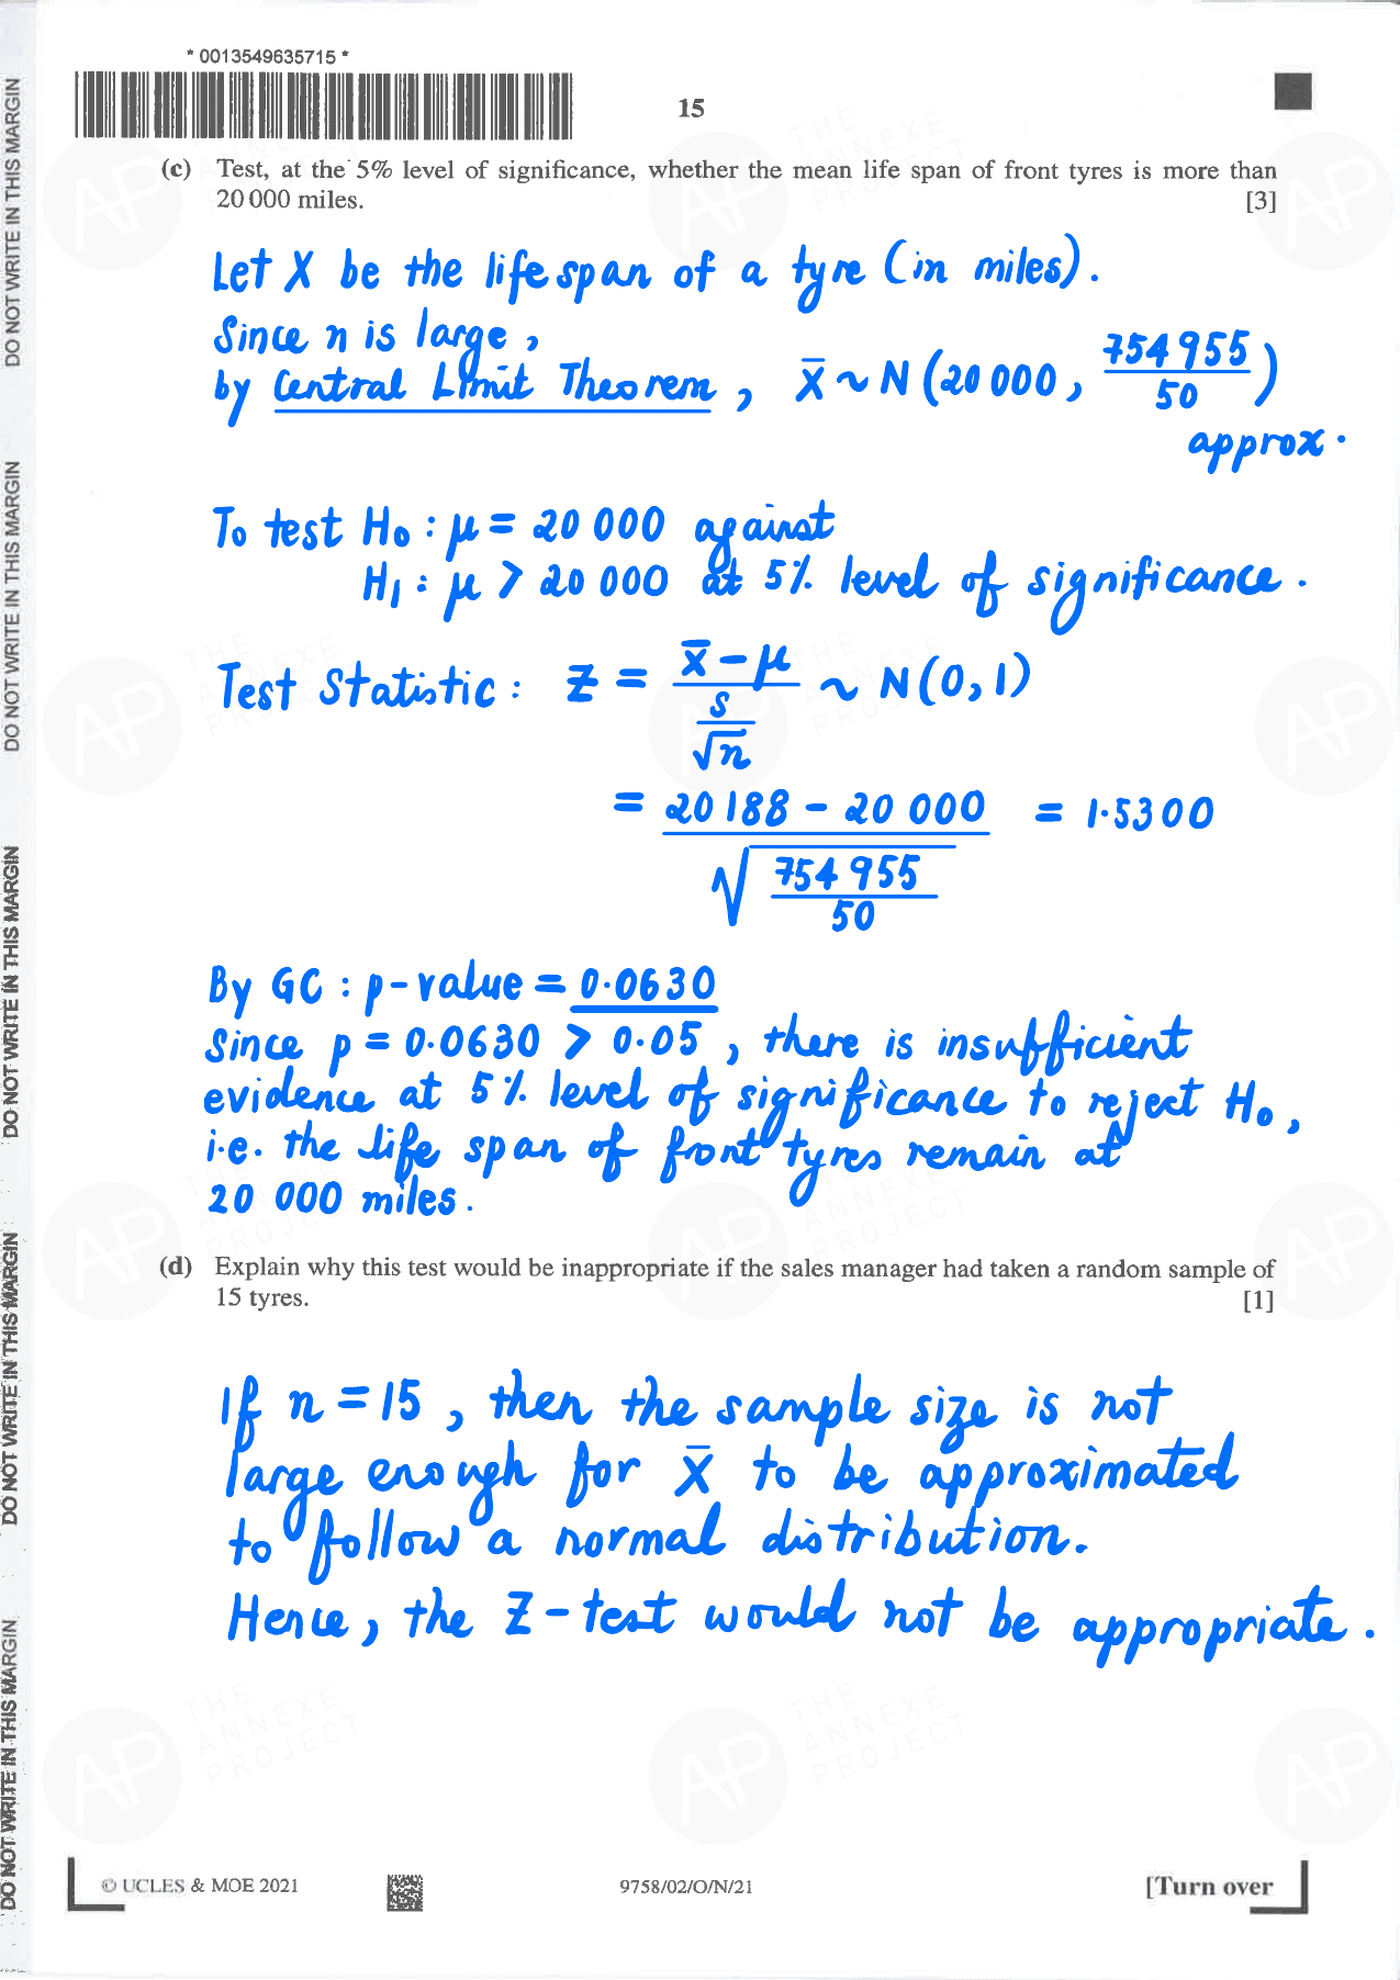 * 0013549635715 *
15
(c) Test, at the 5% level of significance, whether the mean life span of front tyres is more than
20 000 miles. [3]
Let X be the life span of a tyre (in miles).
Since n is large,
by Central Limit Theorem, X̄ ~ N(20 000, 754 955/50)
approx.
To test H₀ : μ = 20 000 against
H₁ : μ > 20 000 at 5% level of significance.
Test Statistic : Z = (x̄ − μ)/(s/√n) ~ N(0,1)
= (20 188 − 20 000)/√(754 955/50) = 1.5300
By GC : p-value = 0.0630
Since p = 0.0630 > 0.05, there is insufficient
evidence at 5% level of significance to reject H₀,
i.e. the life span of front tyres remain at
20 000 miles.
(d) Explain why this test would be inappropriate if the sales manager had taken a random sample of
15 tyres. [1]
If n = 15, then the sample size is not
large enough for X̄ to be approximated
to follow a normal distribution.
Hence, the Z-test would not be appropriate.
© UCLES & MOE 2021
9758/02/O/N/21
[Turn over
DO NOT WRITE IN THIS MARGIN
DO NOT WRITE IN THIS MARGIN
DO NOT WRITE IN THIS MARGIN
DO NOT WRITE IN THIS MARGIN
DO NOT WRITE IN THIS MARGIN
AP
THE
ANNEXE
PROJECT